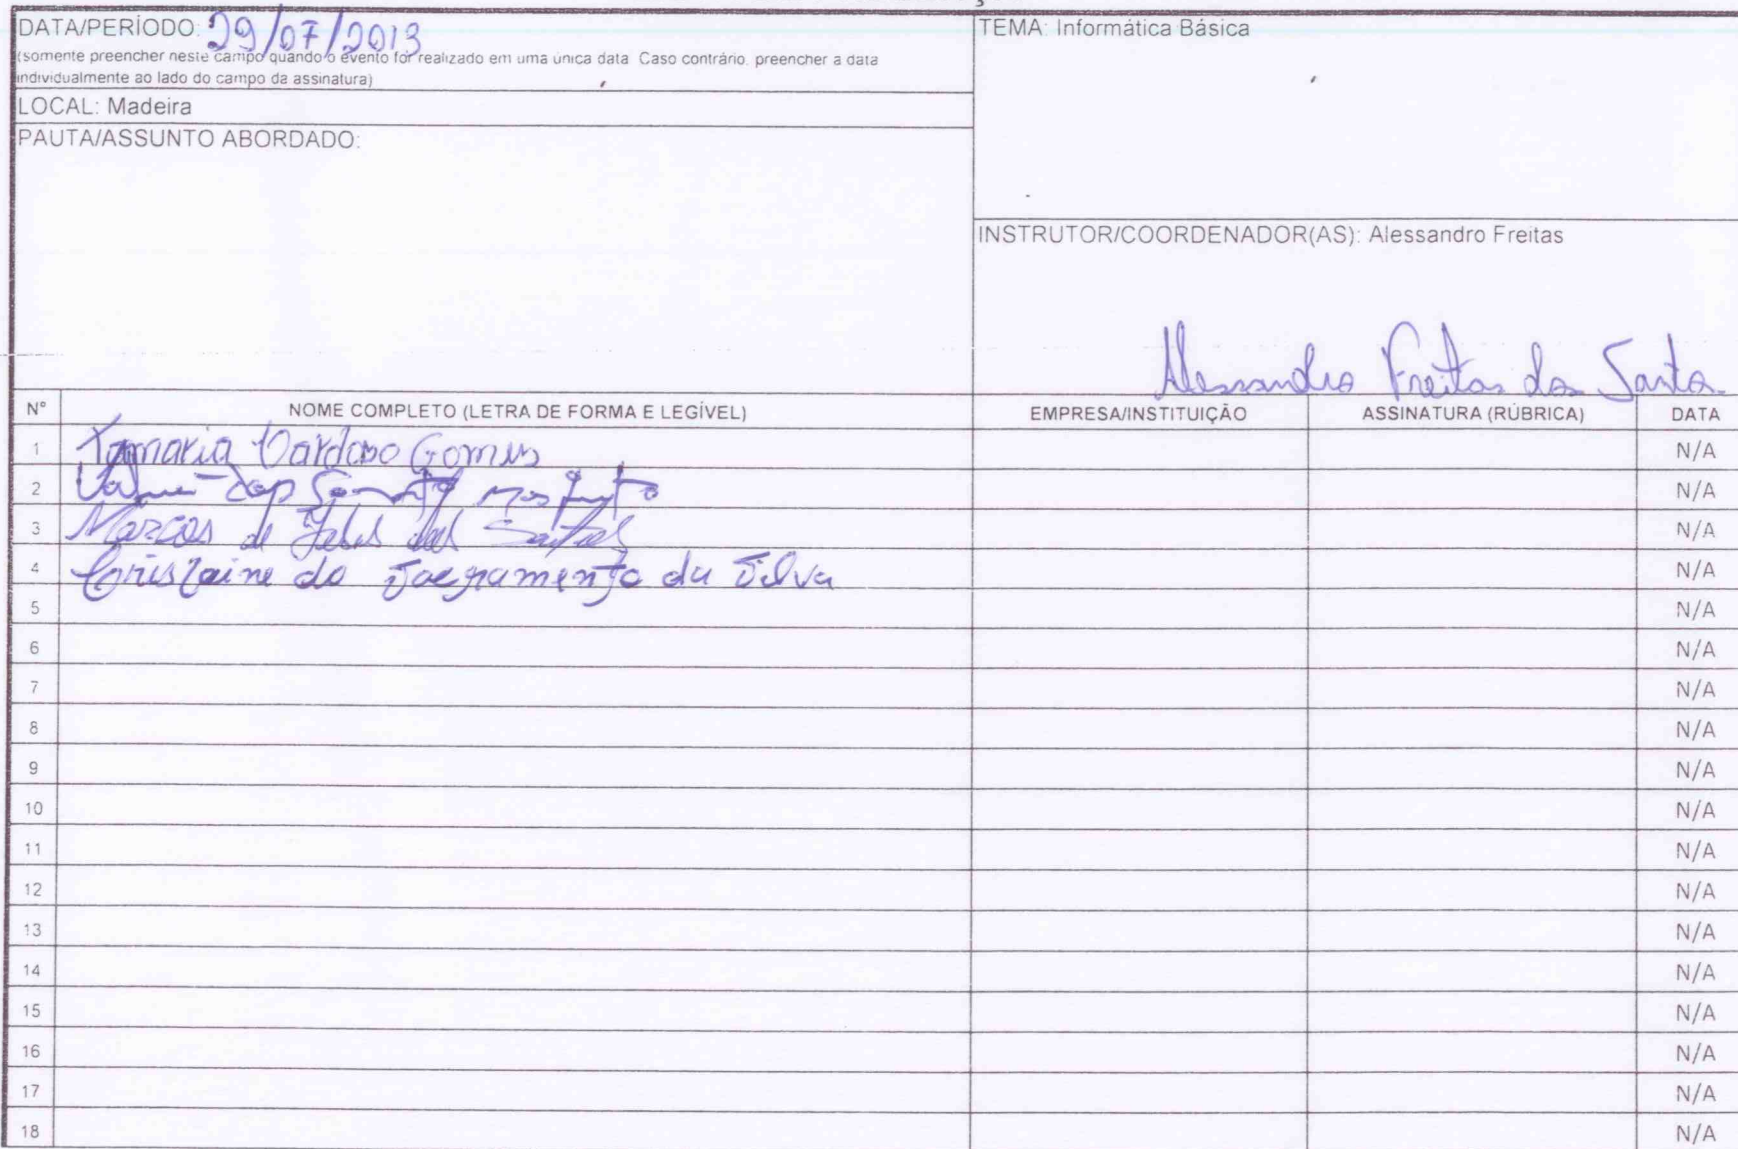 DATA/PERÍODO: 29/07/2013
(somente preencher neste campo quando o evento for realizado em uma única data. Caso contrário, preencher a data
individualmente ao lado do campo da assinatura)
TEMA: Informática Básica
LOCAL: Madeira
PAUTA/ASSUNTO ABORDADO:
INSTRUTOR/COORDENADOR(AS): Alessandro Freitas
Alessandro Freitas dos Santos
N° NOME COMPLETO (LETRA DE FORMA E LEGÍVEL) EMPRESA/INSTITUIÇÃO ASSINATURA (RÚBRICA) DATA
1 Tamaria Cardoso Gomes N/A
2 N/A
3 Marcos de Jesus dos Santos N/A
4 Crislaine do Sacramento da Silva N/A
5 N/A
6 N/A
7 N/A
8 N/A
9 N/A
10 N/A
11 N/A
12 N/A
13 N/A
14 N/A
15 N/A
16 N/A
17 N/A
18 N/A